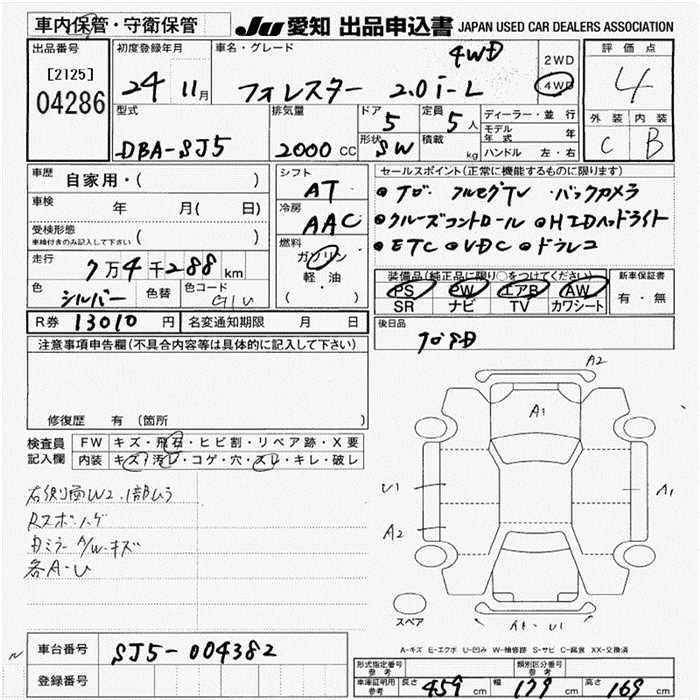 車内保管・守衛保管
JU 愛知 出品申込書 JAPAN USED CAR DEALERS ASSOCIATION
出品番号
[2125]
04286
初度登録年月
24 11月
車名・グレード
4WD
フォレスター 2.0i-L
2WD
4WD
評価点
4
外装 内装
C B
型式
DBA-SJ5
排気量
2000 CC
ドア
5
形状
SW
定員
5人
積載
kg
ディーラー・並行
モデル年式 年
ハンドル 左・右
車歴
自家用・( )
車検
年 月( 日)
受検形態
車検付きのみ記入して下さい ( )
走行
7万4千288km
色
シルバー
色替
色コード
G1U
シフト
AT
冷房
AAC
燃料
ガソリン
軽・油
( )
セールスポイント(正常に機能するものに限ります)
・ナビ・フルセグTV・バックカメラ
・クルーズコントロール・HIDヘッドライト
・ETC・VDC・ドラレコ
装備品(純正品に限り○をつけてください)
PS PW エアB AW
SR ナビ TV カワシート
新車保証書
有・無
R券 13010 円
名変通知期限 月 日
後日品
注意事項申告欄(不具合内容等は具体的に記入して下さい)
修復歴 有 (箇所 )
検査員記入欄
FW キズ・飛石・ヒビ割・リペア跡・X要
内装 キズ・汚レ・コゲ・穴・スレ・キレ・破レ
右側面W2.1部ムラ
Rスポ.ハゲ
A/W.キズ
各A.U
A2
A1
U1
A2
A1
A1.U1
スペア
A-キズ E-エクボ U-凹み W-補修跡 S-サビ C-腐食 XX-交換済
車台番号
SJ5-004382
登録番号
形式指定番号
参考
類別区分番号
参考
車庫証明用
参考
長さ 459 cm 幅 179 cm 高さ 169 cm